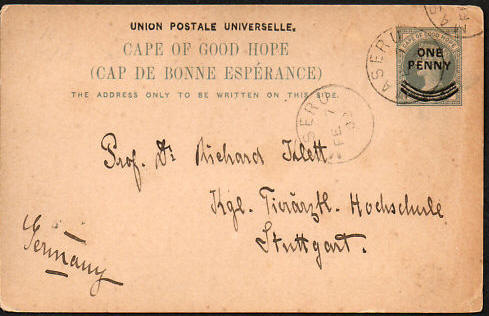 UNION POSTALE UNIVERSELLE.
CAPE OF GOOD HOPE
(CAP DE BONNE ESPÉRANCE)
THE ADDRESS ONLY TO BE WRITTEN ON THIS SIDE.
CAPE OF GOOD HOPE
ONE
PENNY
ASERU
ASERU
FE 1
Prof. Dr Richard Klett
Kgl. Tierärztl. Hochschule
Stuttgart.
Germany